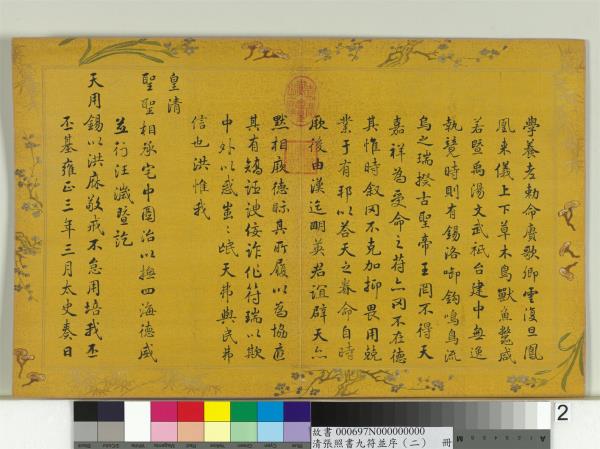 學養老勅命賡歌卿雲復旦鳳
凰來儀上下草木鳥獸魚鱉咸
若暨禹湯文武祗台建中無逸
執競時則有錫洛呞鉤鳴鳥流
烏之瑞揆古聖帝王罔不得天
嘉祥為受命之符亦罔不在德
其惟時叙罔不克加抑畏用兢
業于有邦以答天之眷命自時
厥後由漢迄明英君誼辟天亦
照相厥德眎其所履以為協應
其有矯誣諛佞詐作符瑞以欺
中外以惑蚩蚩氓天弗與民弗
信也洪惟我
皇清
聖聖相承宅中圖治以撫四海德威
並行汪濊暨訖
天用錫以洪庥敬戒不怠用培我丕
丕基雍正三年三月太史奏日
故書 000697N000000000
清張照書九符並序（二） 冊
2